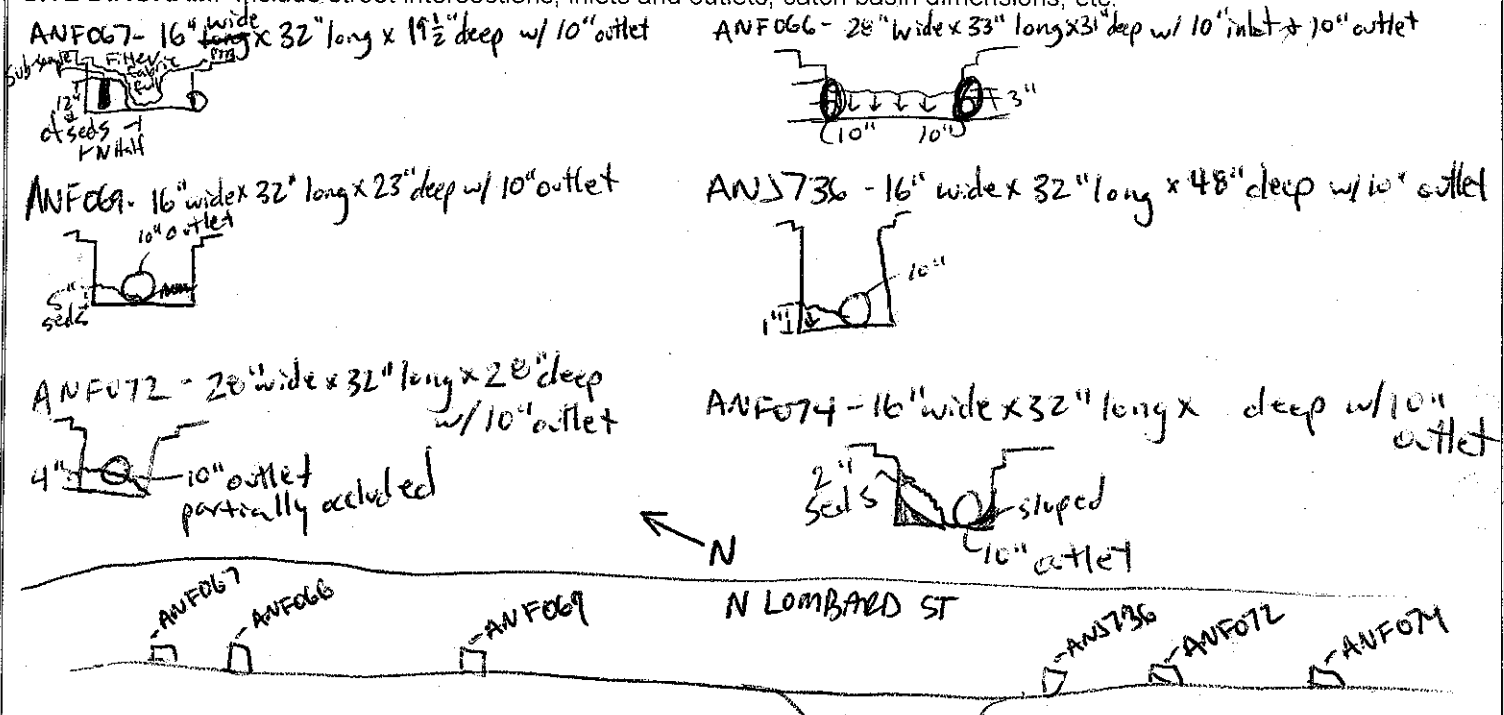 SITE DIAGRAM: Include street intersections, inlets and outlets, catch basin dimensions, etc.
ANF067- 16" wide x 32" long x 19½" deep w/ 10" outlet
Sub-sample
Filter
fabric
full
12"
of seds
N Half
ANF066- 28" wide x 33" long x 31" deep w/ 10" inlet + 10" outlet
3"
10" 10"
ANF069- 16" wide x 32" long x 23" deep w/ 10" outlet
10" outlet
5"
seds
ANJ736 - 16" wide x 32" long x 48" deep w/ 10" outlet
10"
1"
ANF072 - 28" wide x 32" long x 28" deep
w/ 10" outlet
4"
10" outlet
partially occluded
ANF074 - 16" wide x 32" long x deep w/ 10"
outlet
2"
seds
sloped
10" outlet
N
N LOMBARD ST
ANF067
ANF066
ANF069
ANJ736
ANF072
ANF074